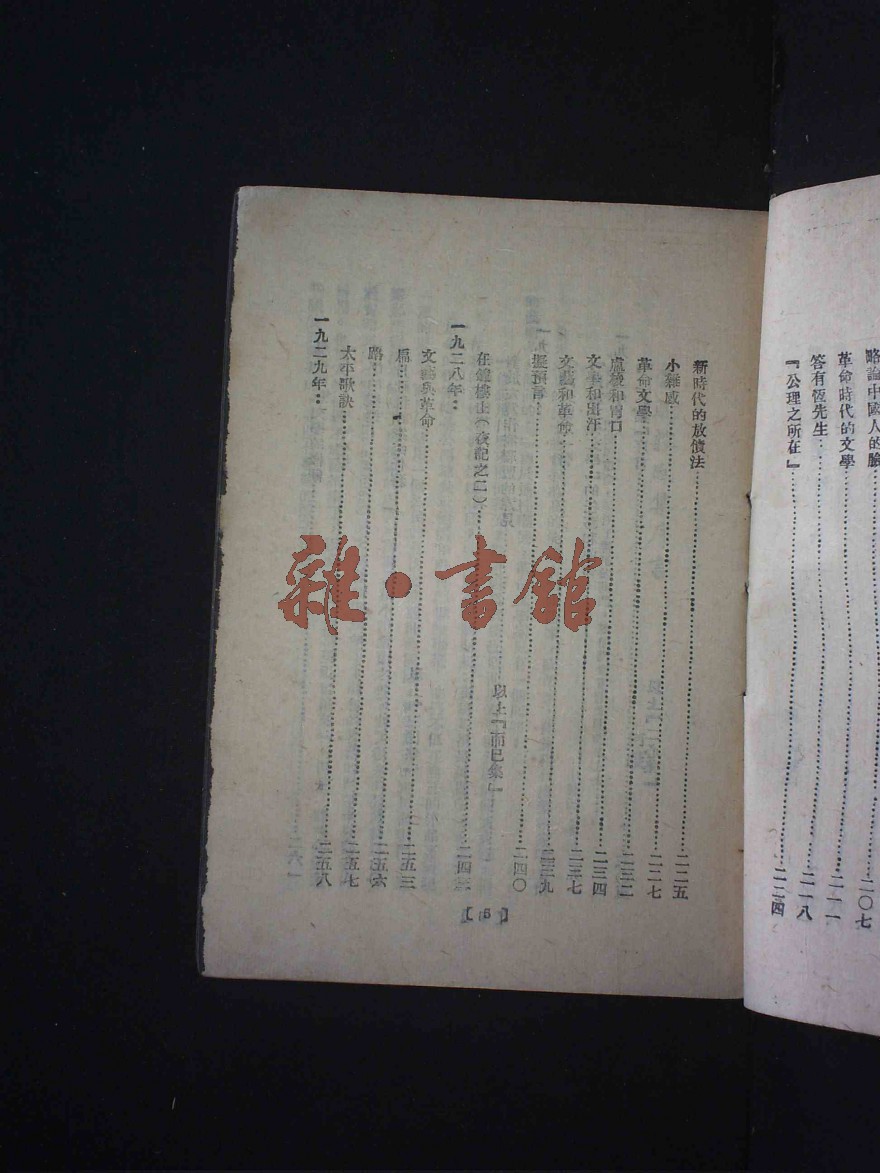 略論中國人的臉……二〇七
革命時代的文學……二一一
答有恆先生……二一八
『公理之所在』……二二四
新時代的放債法……二二五
小雜感……二二七
革命文學……二三二
盧梭和胃口……二三四
文學和出汗……二三七
文藝和革命……二三九
擬預言……二四〇
以上『而已集』
在鐘樓上（夜記之二）……二四三
一九二八年：
文藝與革命……二五三
扁……二五六
路……二五七
太平歌訣……二五八
一九二九年……二六一
【5】
雜·書館